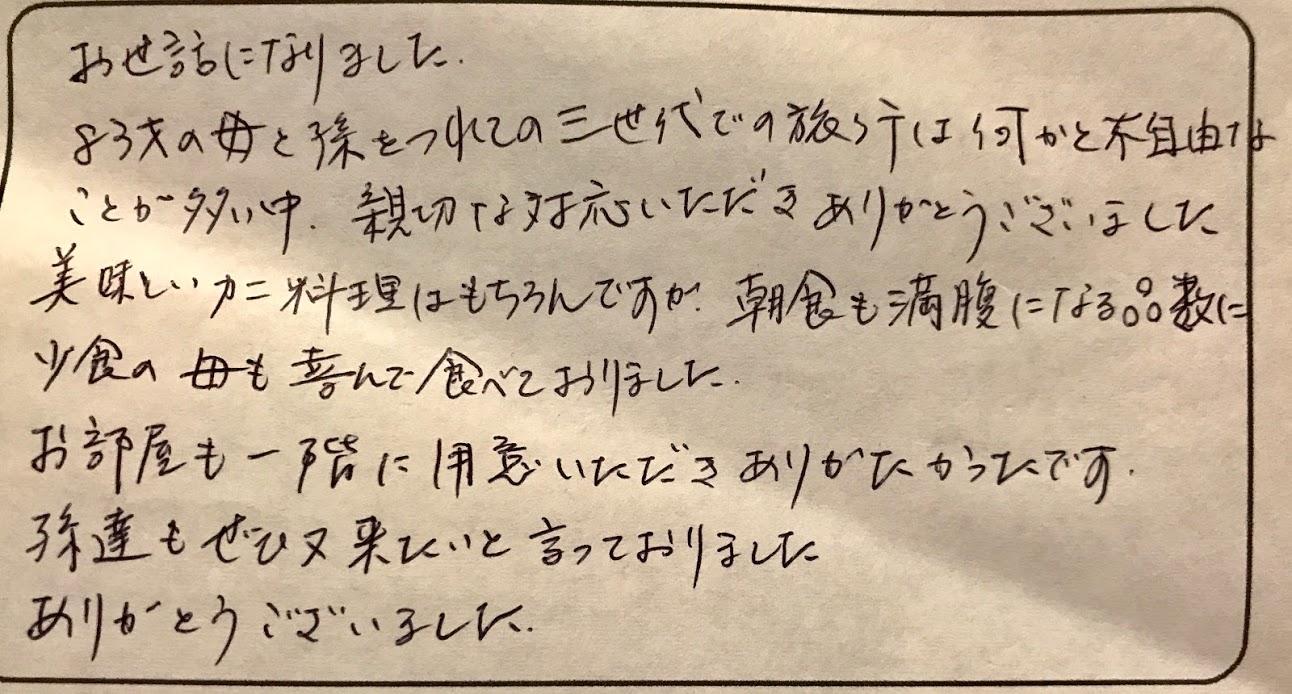 お世話になりました.
83才の母と孫をつれての三世代での旅行は何かと不自由な
ことが多い中. 親切な対応いただきありがとうございました
美味しいカニ料理はもちろんですが. 朝食も満腹になる品数に
少食の母も喜んで食べておりました.
お部屋も一階に用意いただきありがたかったです.
孫達もぜひ又来たいと言っておりました
ありがとうございました.